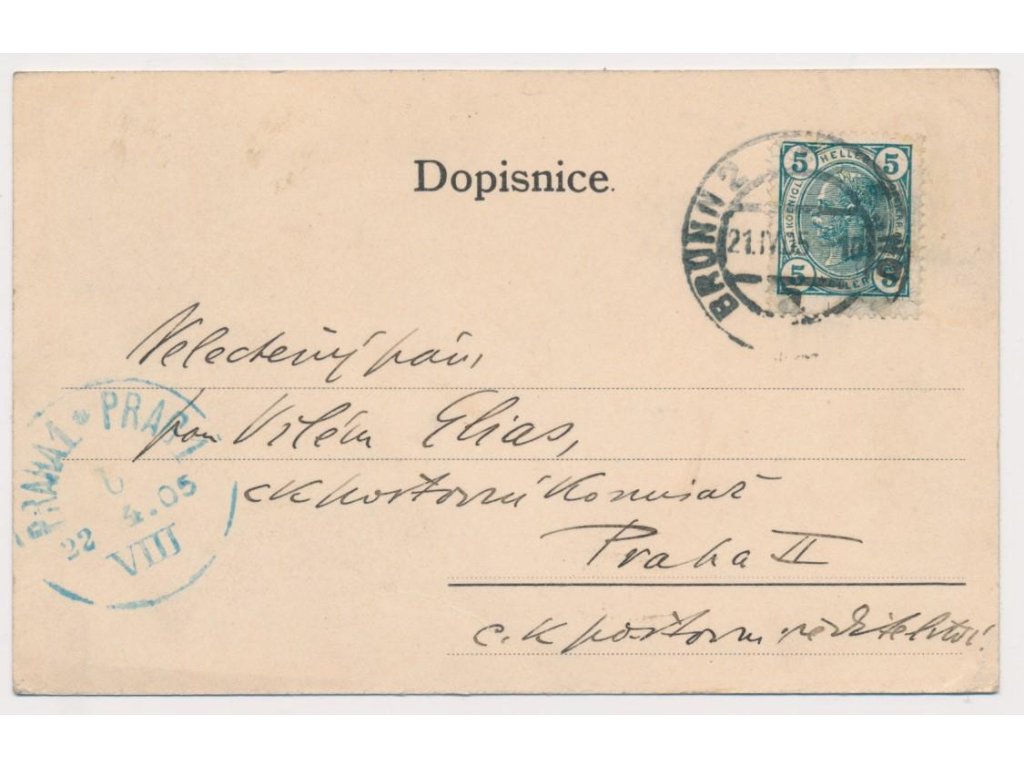 Dopisnice.
BRÜNN 2
21.IV.05
5 HELLER 5
5 HELLER 5
Velectěný pán,
pan Vilém Elias,
ck poštovní Komisař
Praha II
c.k poštovní ředitelství.
PRAHA 1 * PRAG 1
22 4.05
VIII